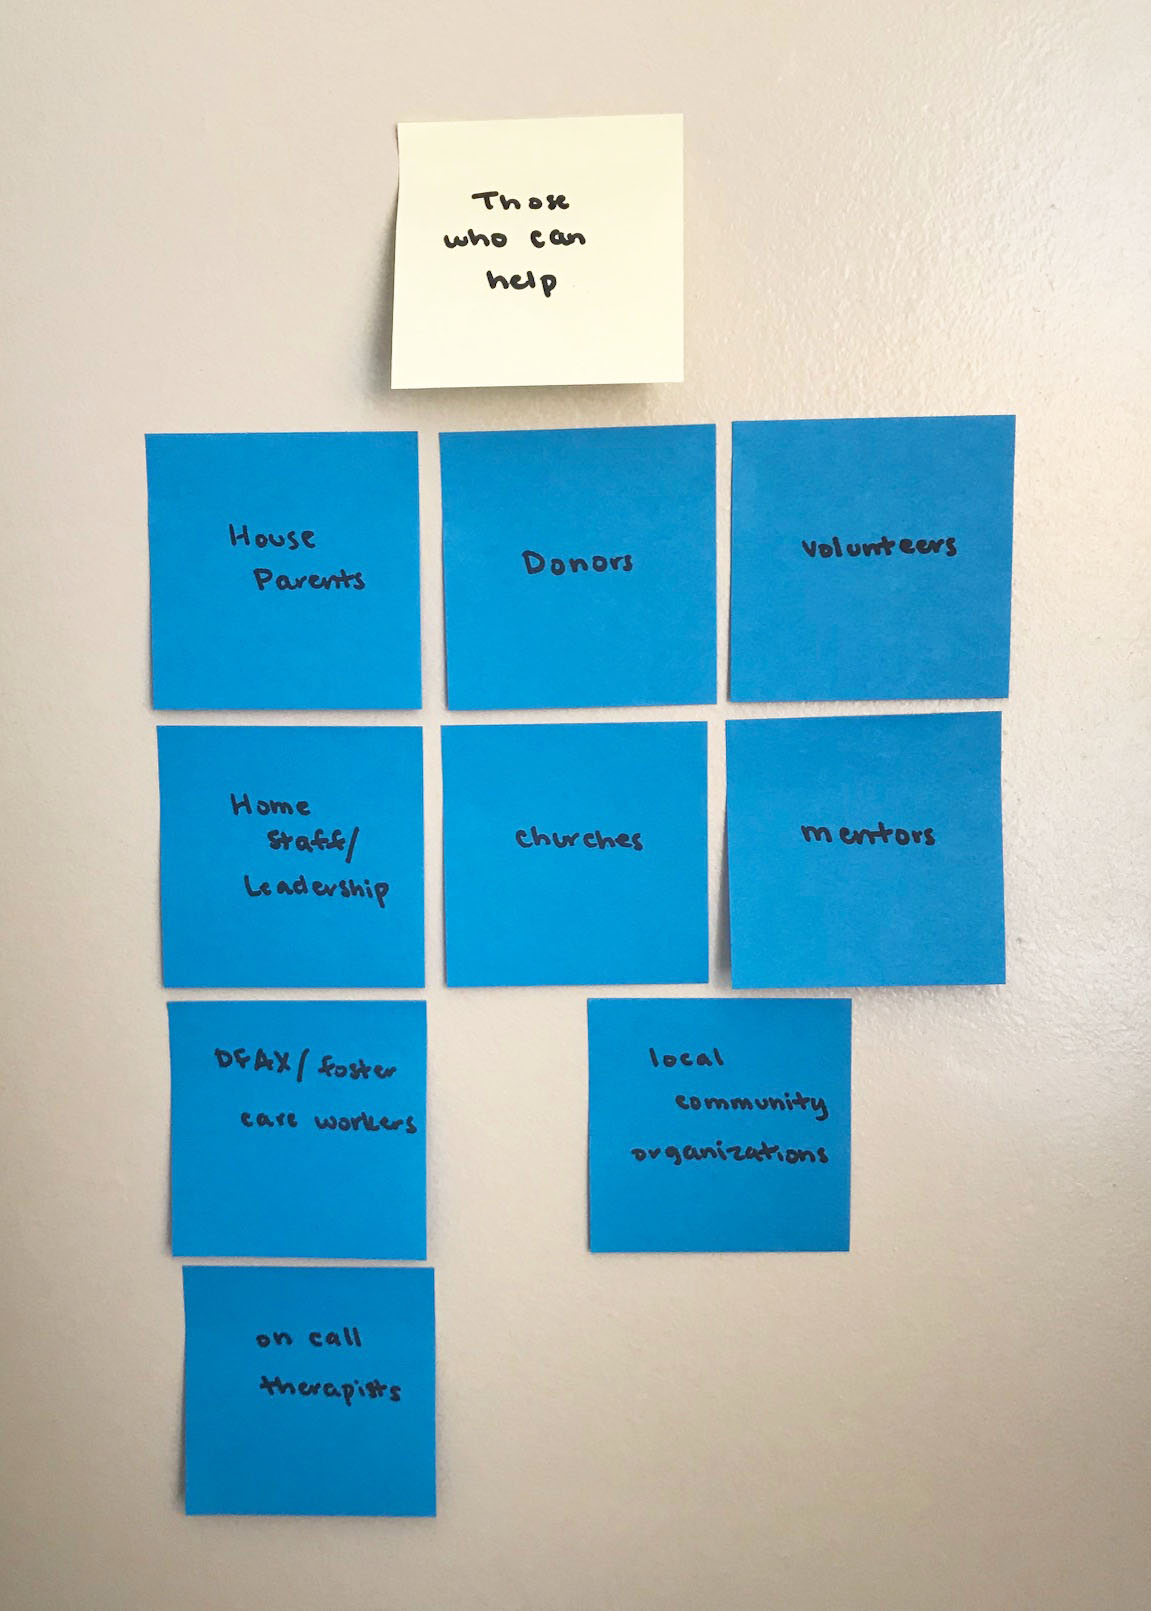 Those
who can
help
House
Parents
Donors
volunteers
Home
Staff/
Leadership
churches
mentors
DFAX/foster
care workers
local
community
organizations
on call
therapists